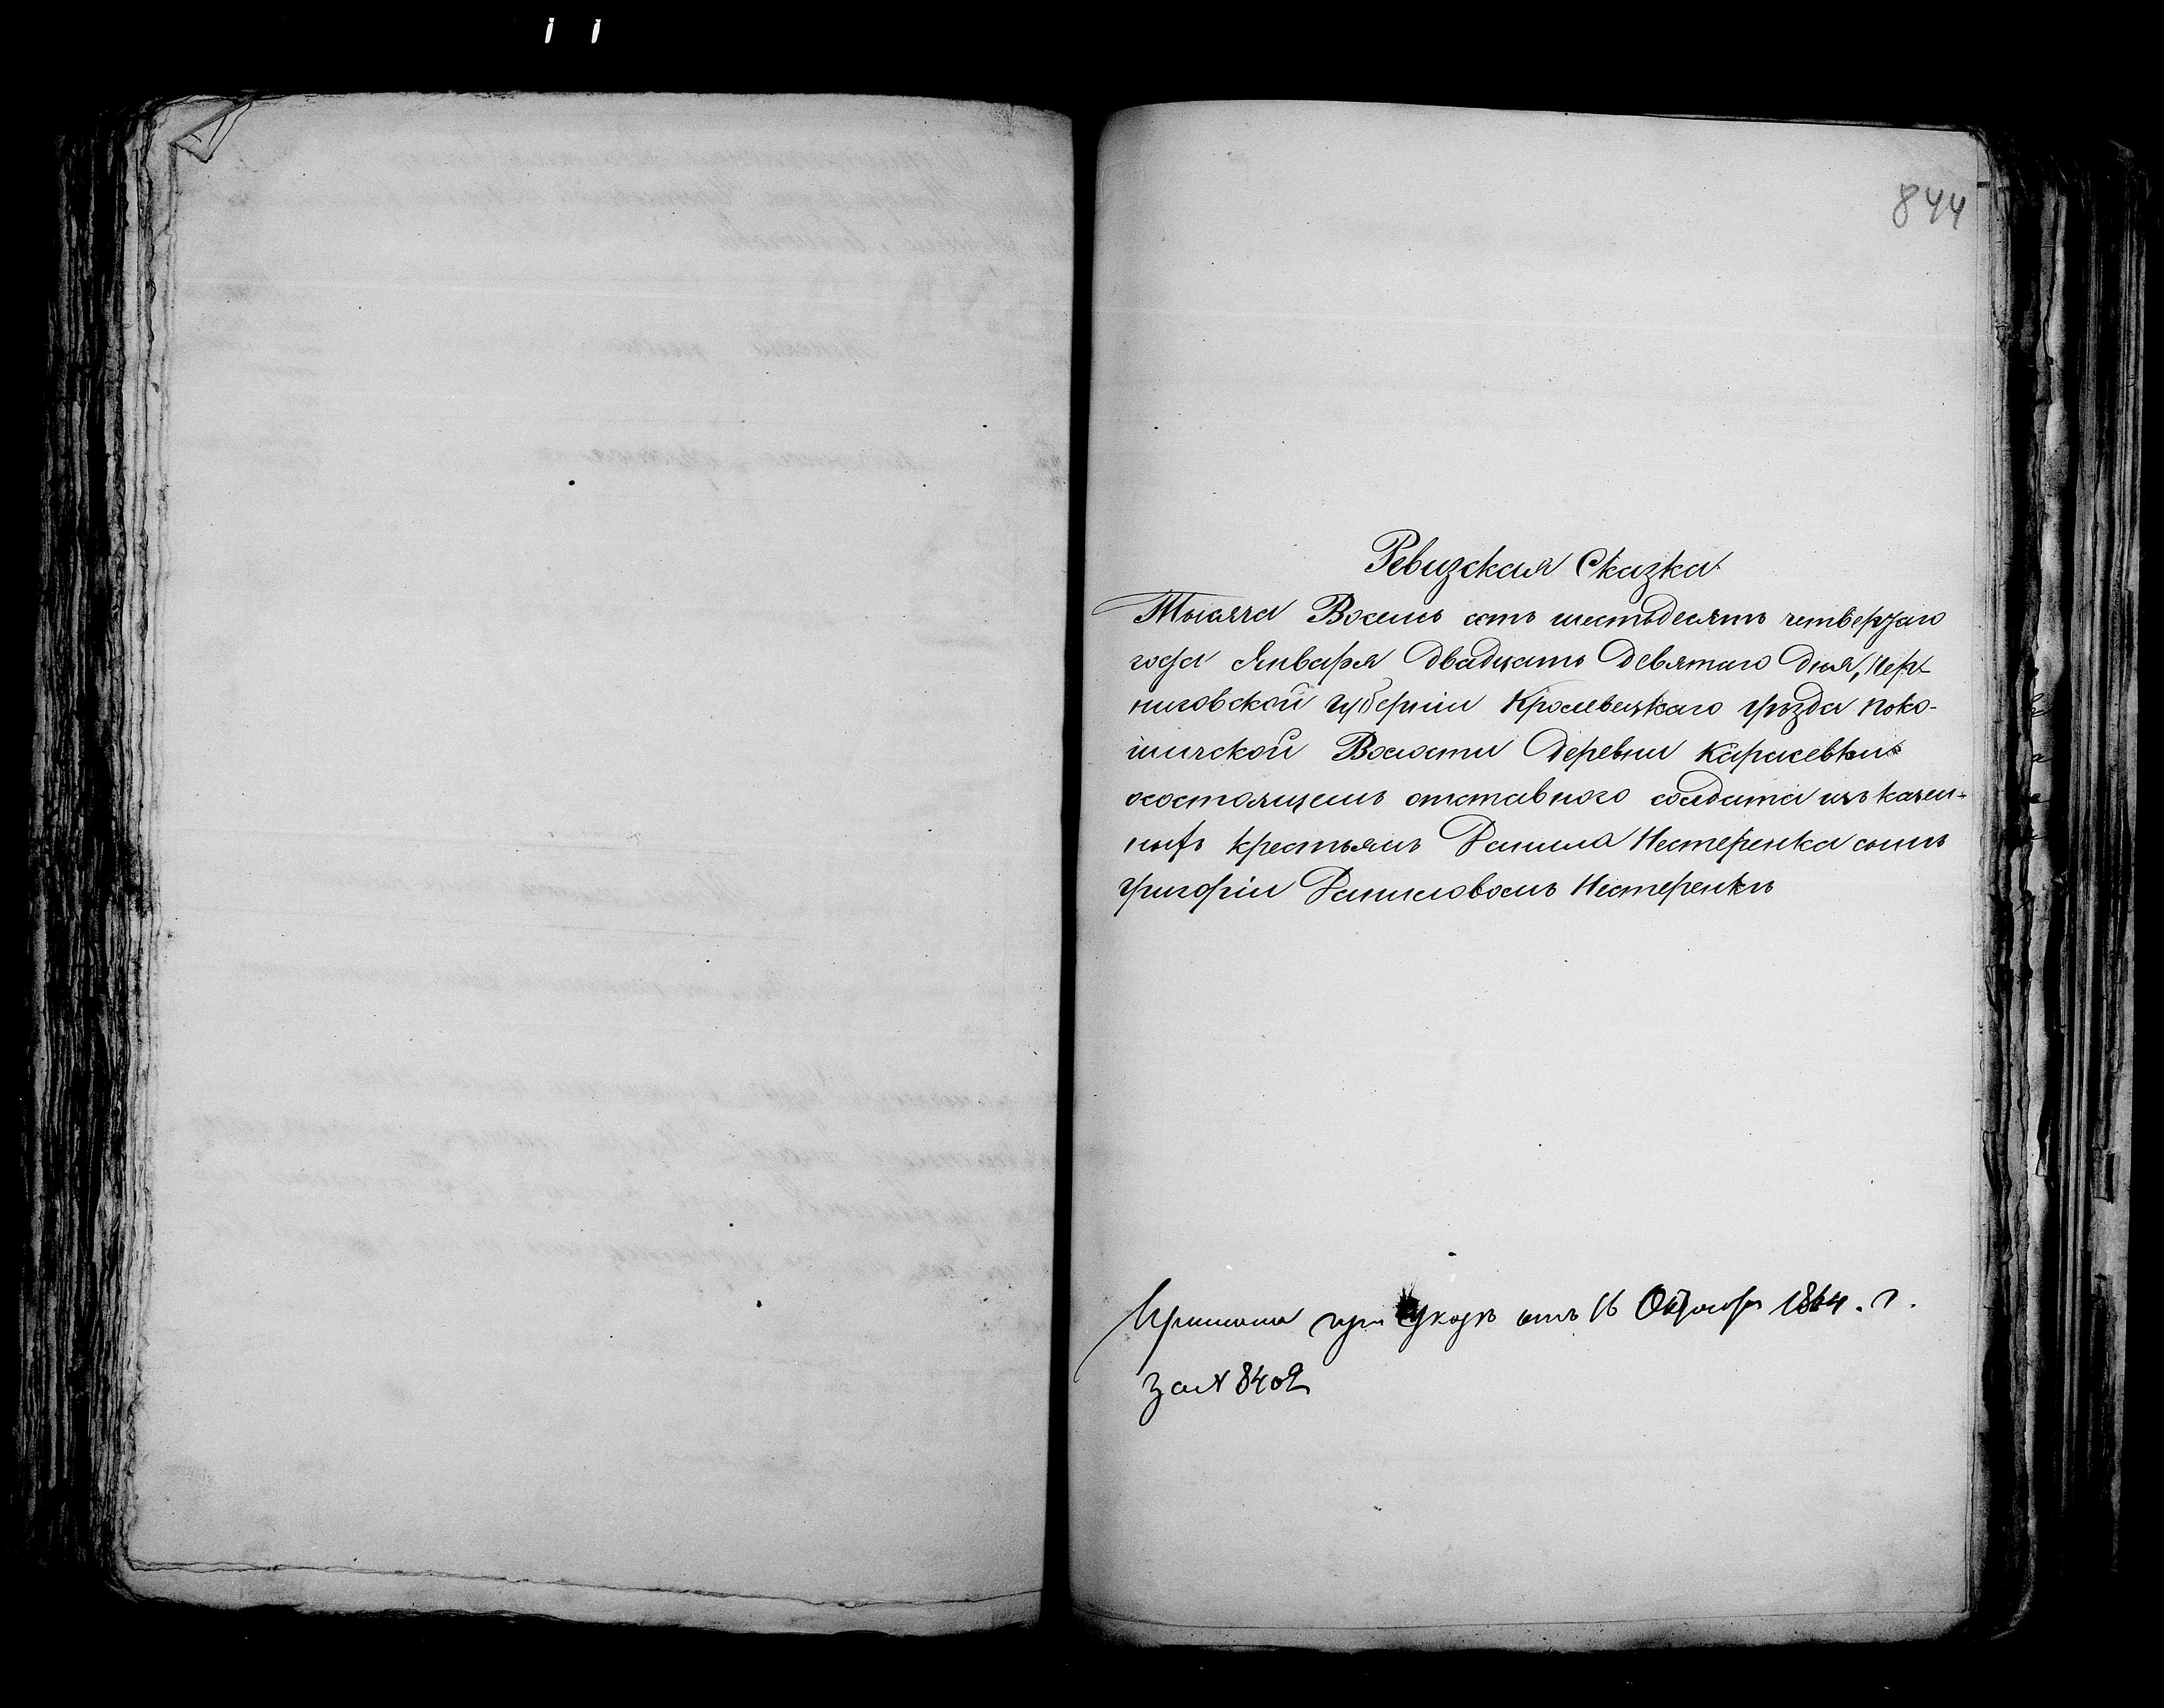 844
Ревизская Сказка
Тысяча Восемь сотъ шестьдесятъ четвертаго
года Января двадцать девятаго дня, Чер-
ниговской губерніи Кролевецкаго уѣзда Поко-
шичской Волости деревни Карасевки
о состоящемъ отставного солдата изъ казен-
ныхъ крестьянъ Данила Нестеренка сынъ
Григоріи Даниловомъ Нестеренкѣ
при Указѣ отъ 16 Октября 1864. г.
за № 8402